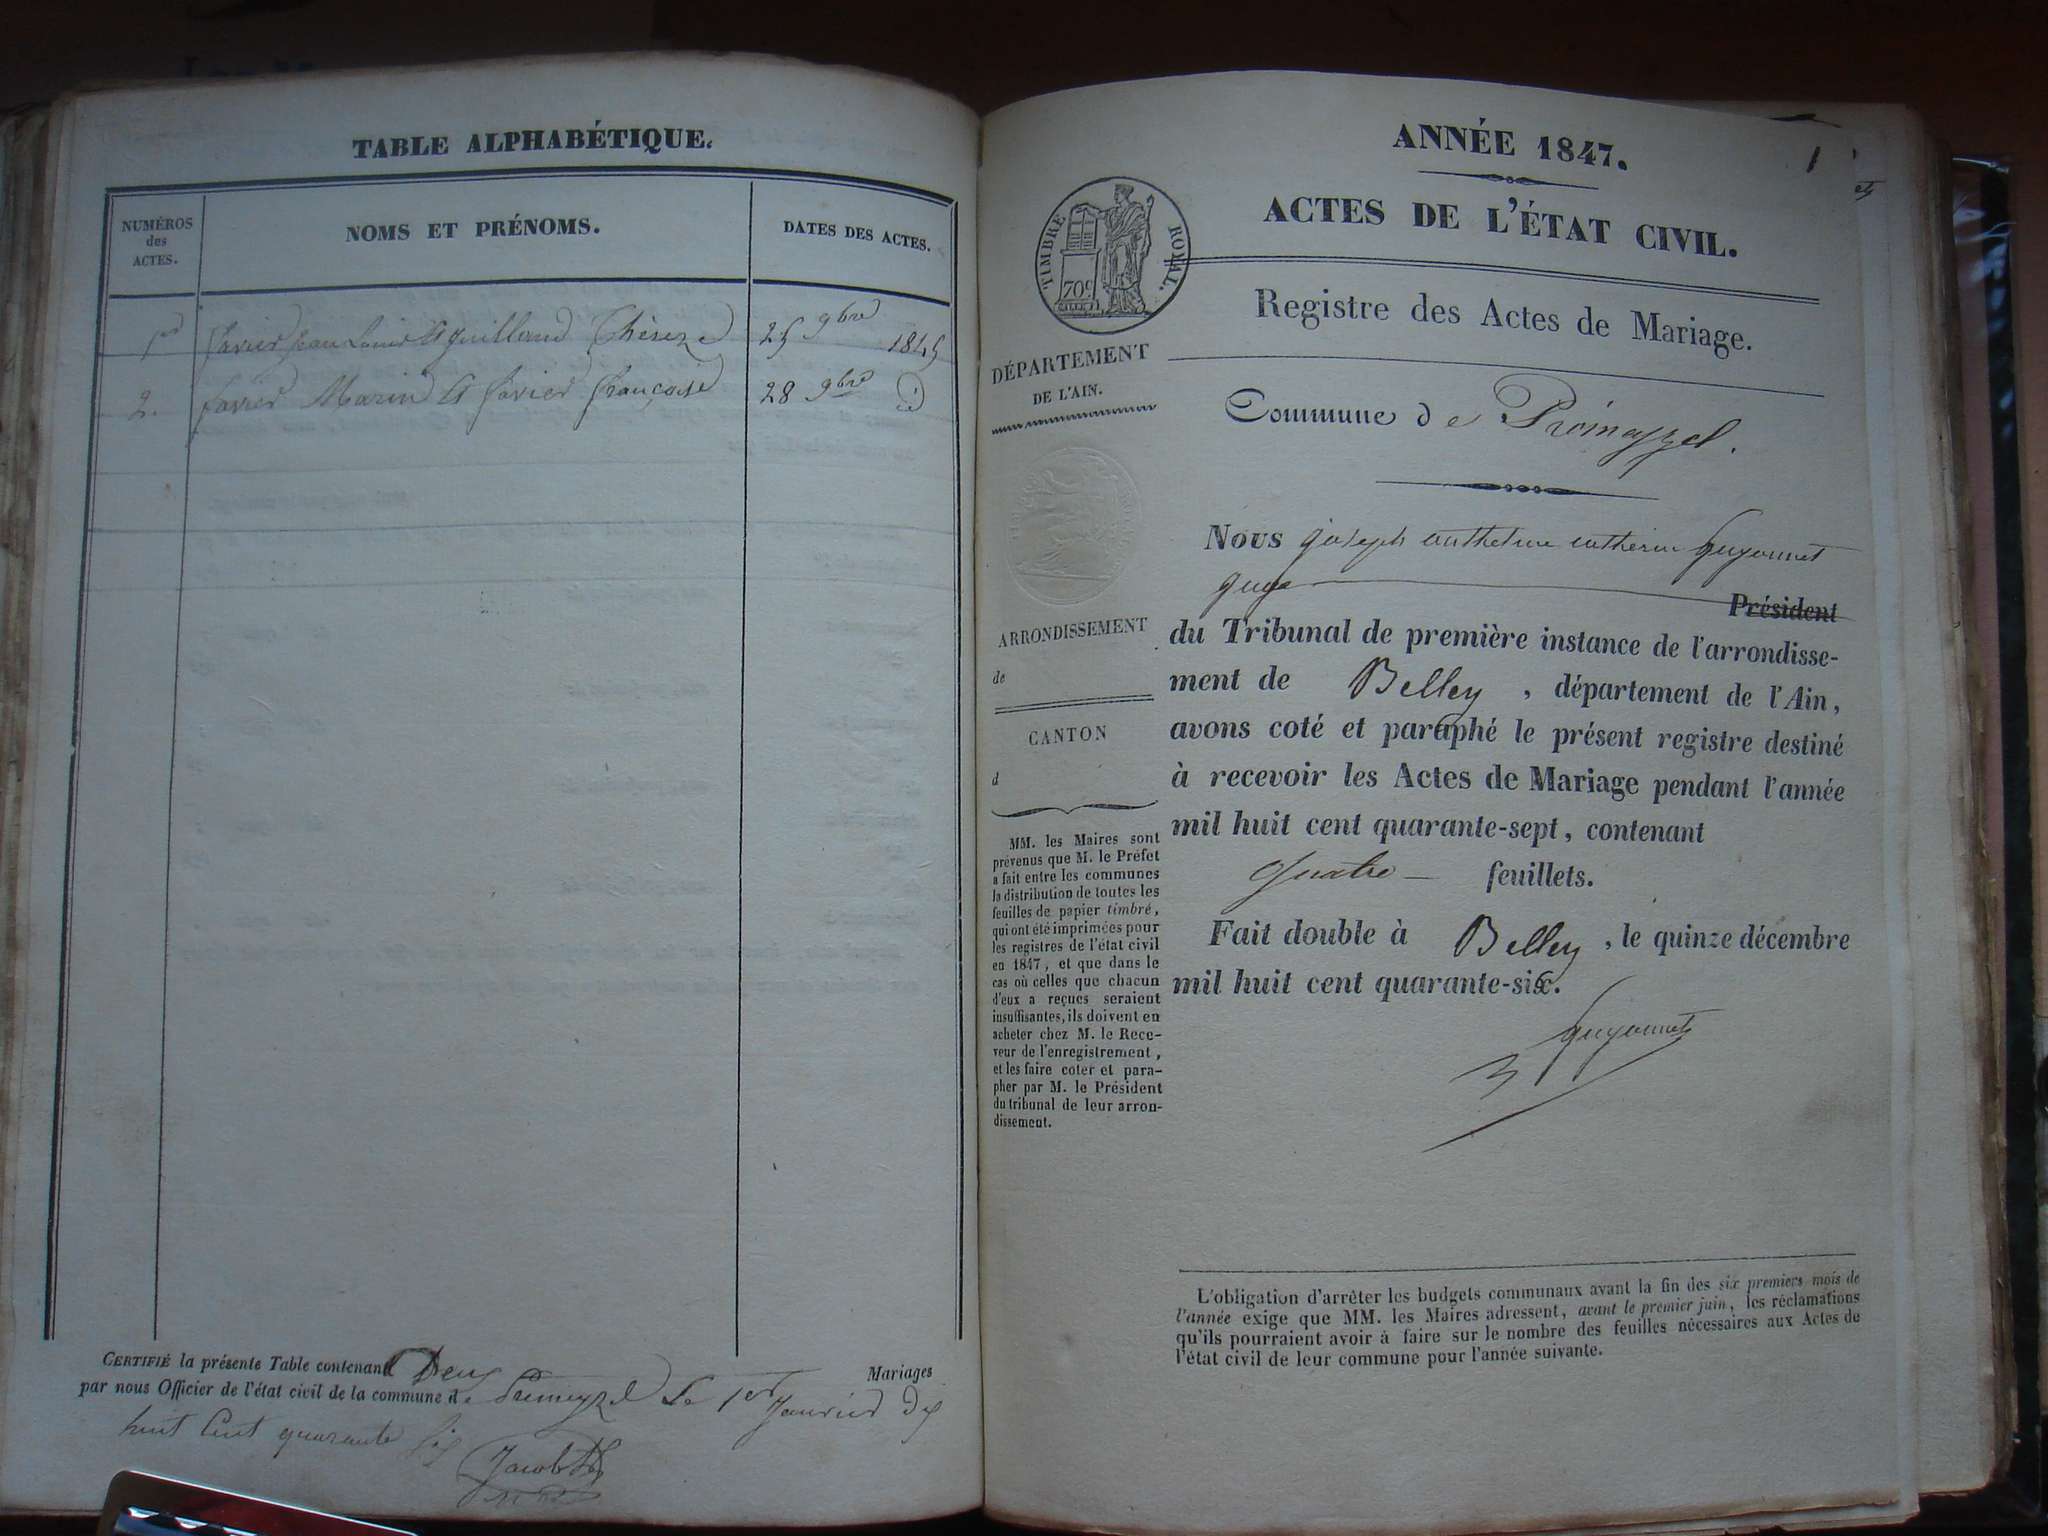 TABLE ALPHABÉTIQUE.
NUMÉROS
des
ACTES.
NOMS ET PRÉNOMS.
DATES DES ACTES.
1er favier jean Louis et guilland Thérèze 25 9bre 1845
2. favier Marin et favier françoise 28 9bre id
CERTIFIÉ la présente Table contenant Deux Mariages
par nous Officier de l'état civil de la commune de Premeyzel le 1er Janvier dix
huit Cent quarante six
Jacob
ANNÉE 1847.
1
ACTES DE L'ÉTAT CIVIL.
TIMBRE ROYAL.
70c
Registre des Actes de Mariage.
DÉPARTEMENT
DE L'AIN.
Commune de Prémeyzel.
Nous joseph anthelme catherin Guyonnet
juge
Président
ARRONDISSEMENT
de
du Tribunal de première instance de l'arrondisse-
ment de Belley, département de l'Ain,
CANTON
d
avons coté et paraphé le présent registre destiné
à recevoir les Actes de Mariage pendant l'année
mil huit cent quarante-sept, contenant
quatre feuillets.
Fait double à Belley, le quinze décembre
mil huit cent quarante-six.
Guyonnet
MM. les Maires sont
prévenus que M. le Préfet
a fait entre les communes
la distribution de toutes les
feuilles de papier timbré,
qui ont été imprimées pour
les registres de l'état civil
en 1847, et que dans le
cas où celles que chacun
d'eux a reçues seraient
insuffisantes, ils doivent en
acheter chez M. le Rece-
veur de l'enregistrement,
et les faire coter et para-
pher par M. le Président
du tribunal de leur arron-
dissement.
L'obligation d'arrêter les budgets communaux avant la fin des six premiers mois de
l'année exige que MM. les Maires adressent, avant le premier juin, les réclamations
qu'ils pourraient avoir à faire sur le nombre des feuilles nécessaires aux Actes de
l'état civil de leur commune pour l'année suivante.